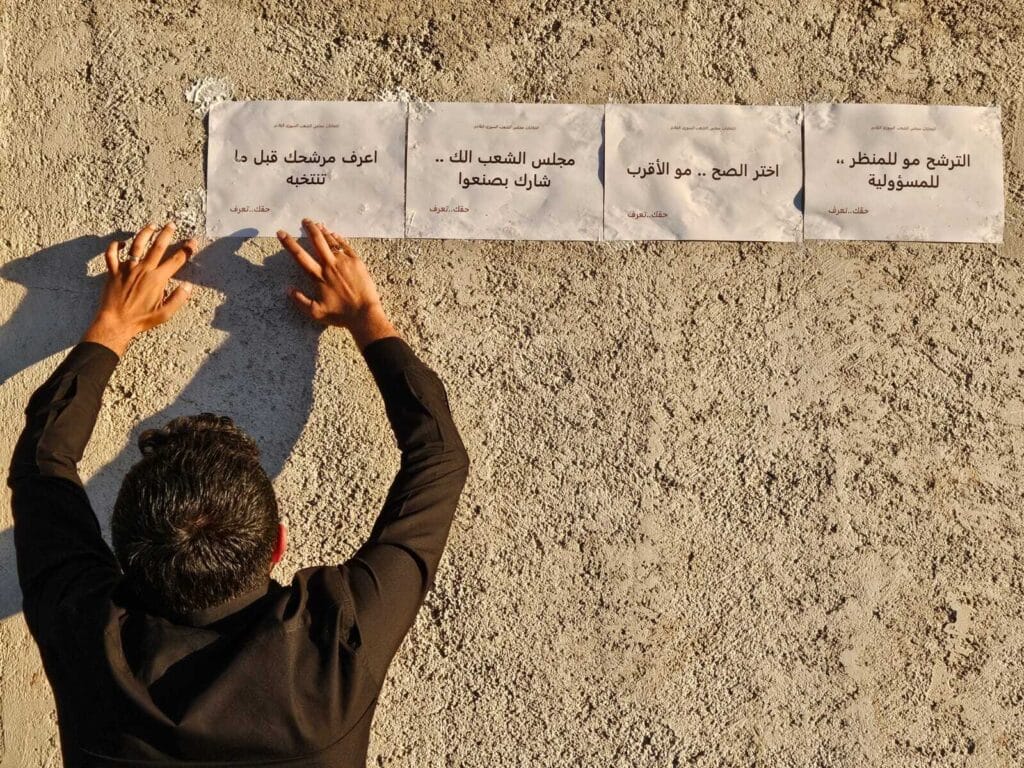 انتخابات مجلس الشعب السوري القادم
الترشح مو للمنظر ،،
للمسؤولية
حقك..تعرف
انتخابات مجلس الشعب السوري القادم
اختر الصح .. مو الأقرب
حقك..تعرف
انتخابات مجلس الشعب السوري القادم
مجلس الشعب الك ..
شارك بصنعوا
حقك..تعرف
انتخابات مجلس الشعب السوري القادم
اعرف مرشحك قبل ما
تنتخبه
حقك..تعرف